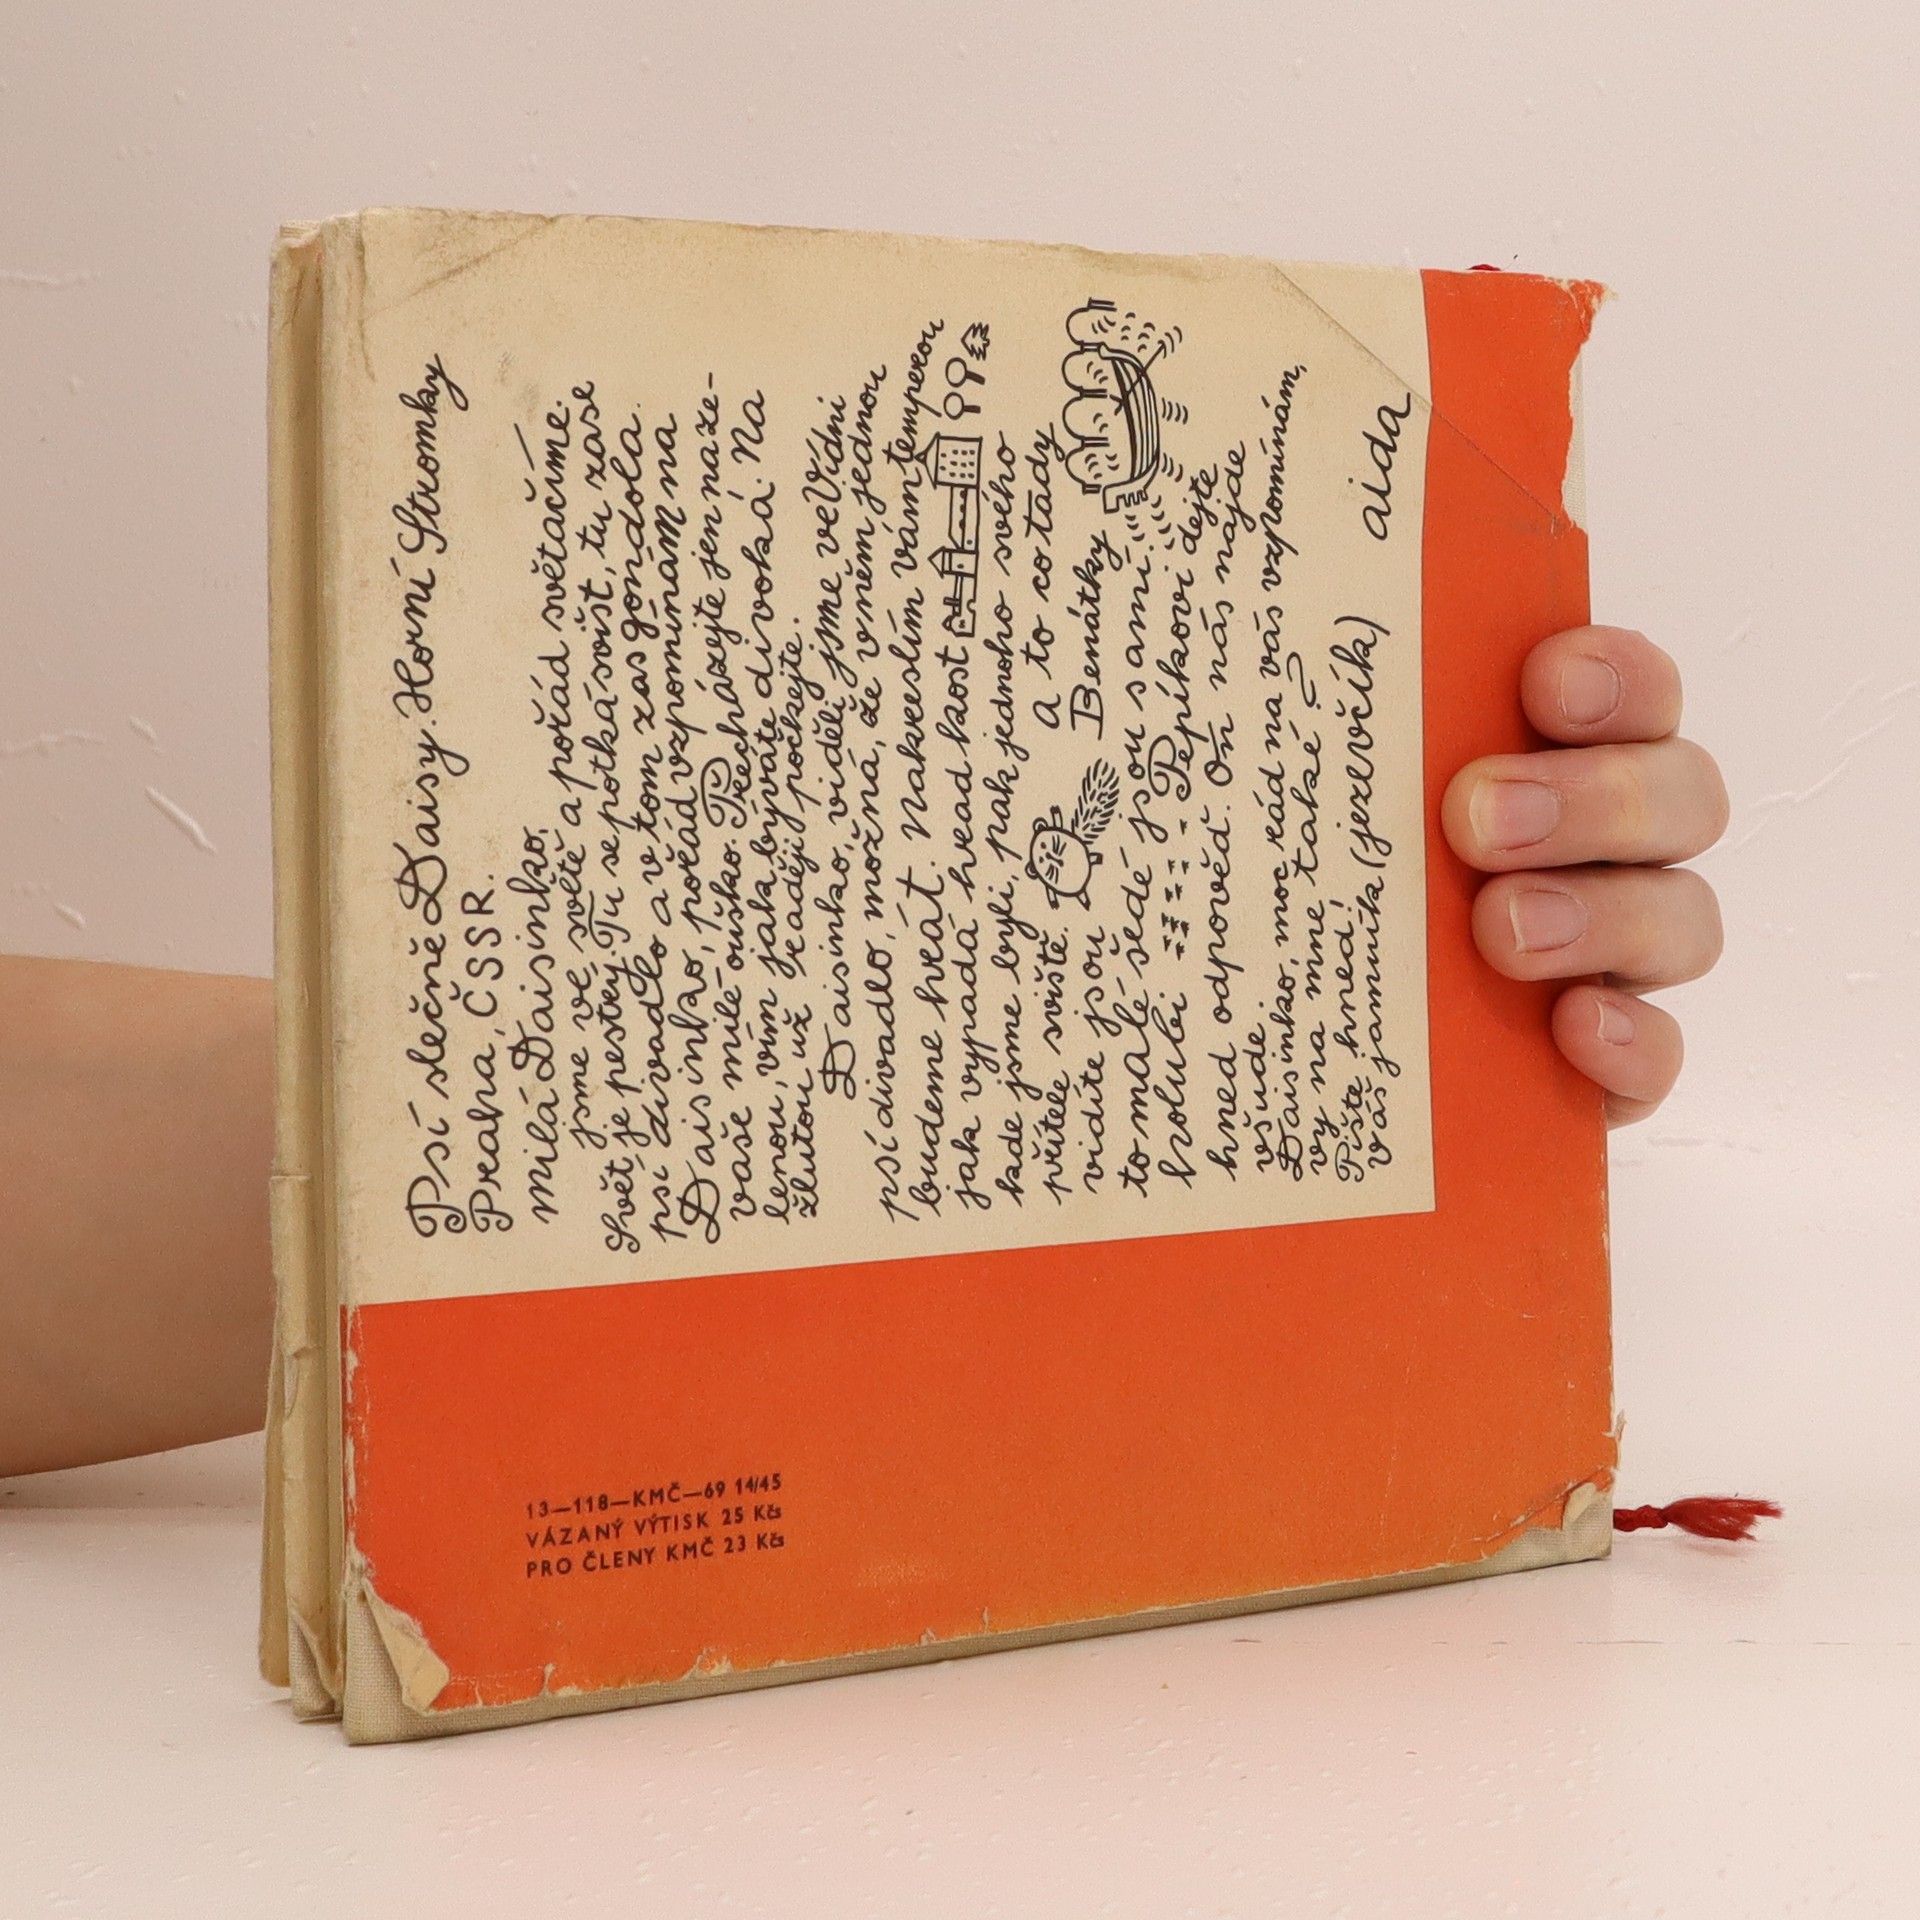 Psí slečně Daisy. Horní Stromky
Praha, ČSSR.
milá Daisinko,
jsme ve světě a pořád světačíme.
Svět je pestrý. Tu se potká svišť, tu zase
psí divadlo a v tom zas gondola.
Daisinko, pořád vzpomínám na
vaše milé ouško. Přecházejte jen na ze-
lenou, vím jak býváte divoká. Na
žlutou už raději počkejte.
Daisinko, viděli jsme ve Vídni
psí divadlo, možná, že v něm jednou
budeme hrát. Nakreslím vám temperou
jak vypadá hrad kost
kde jsme byli, pak jednoho svého
přítele sviště. a to co tady
vidíte jsou Benátky
to malé šedé jsou s ami.
holubi Pepíkovi dejte
hned odpověď. On nás najde
všude.
Daisinko, moc rád na vás vzpomínám,
vy na mne také?
Pište hned!
Váš jamník (jezevčík) aida
13—118—KMČ—69 14/45
VÁZANÝ VÝTISK 25 Kčs
PRO ČLENY KMČ 23 Kčs